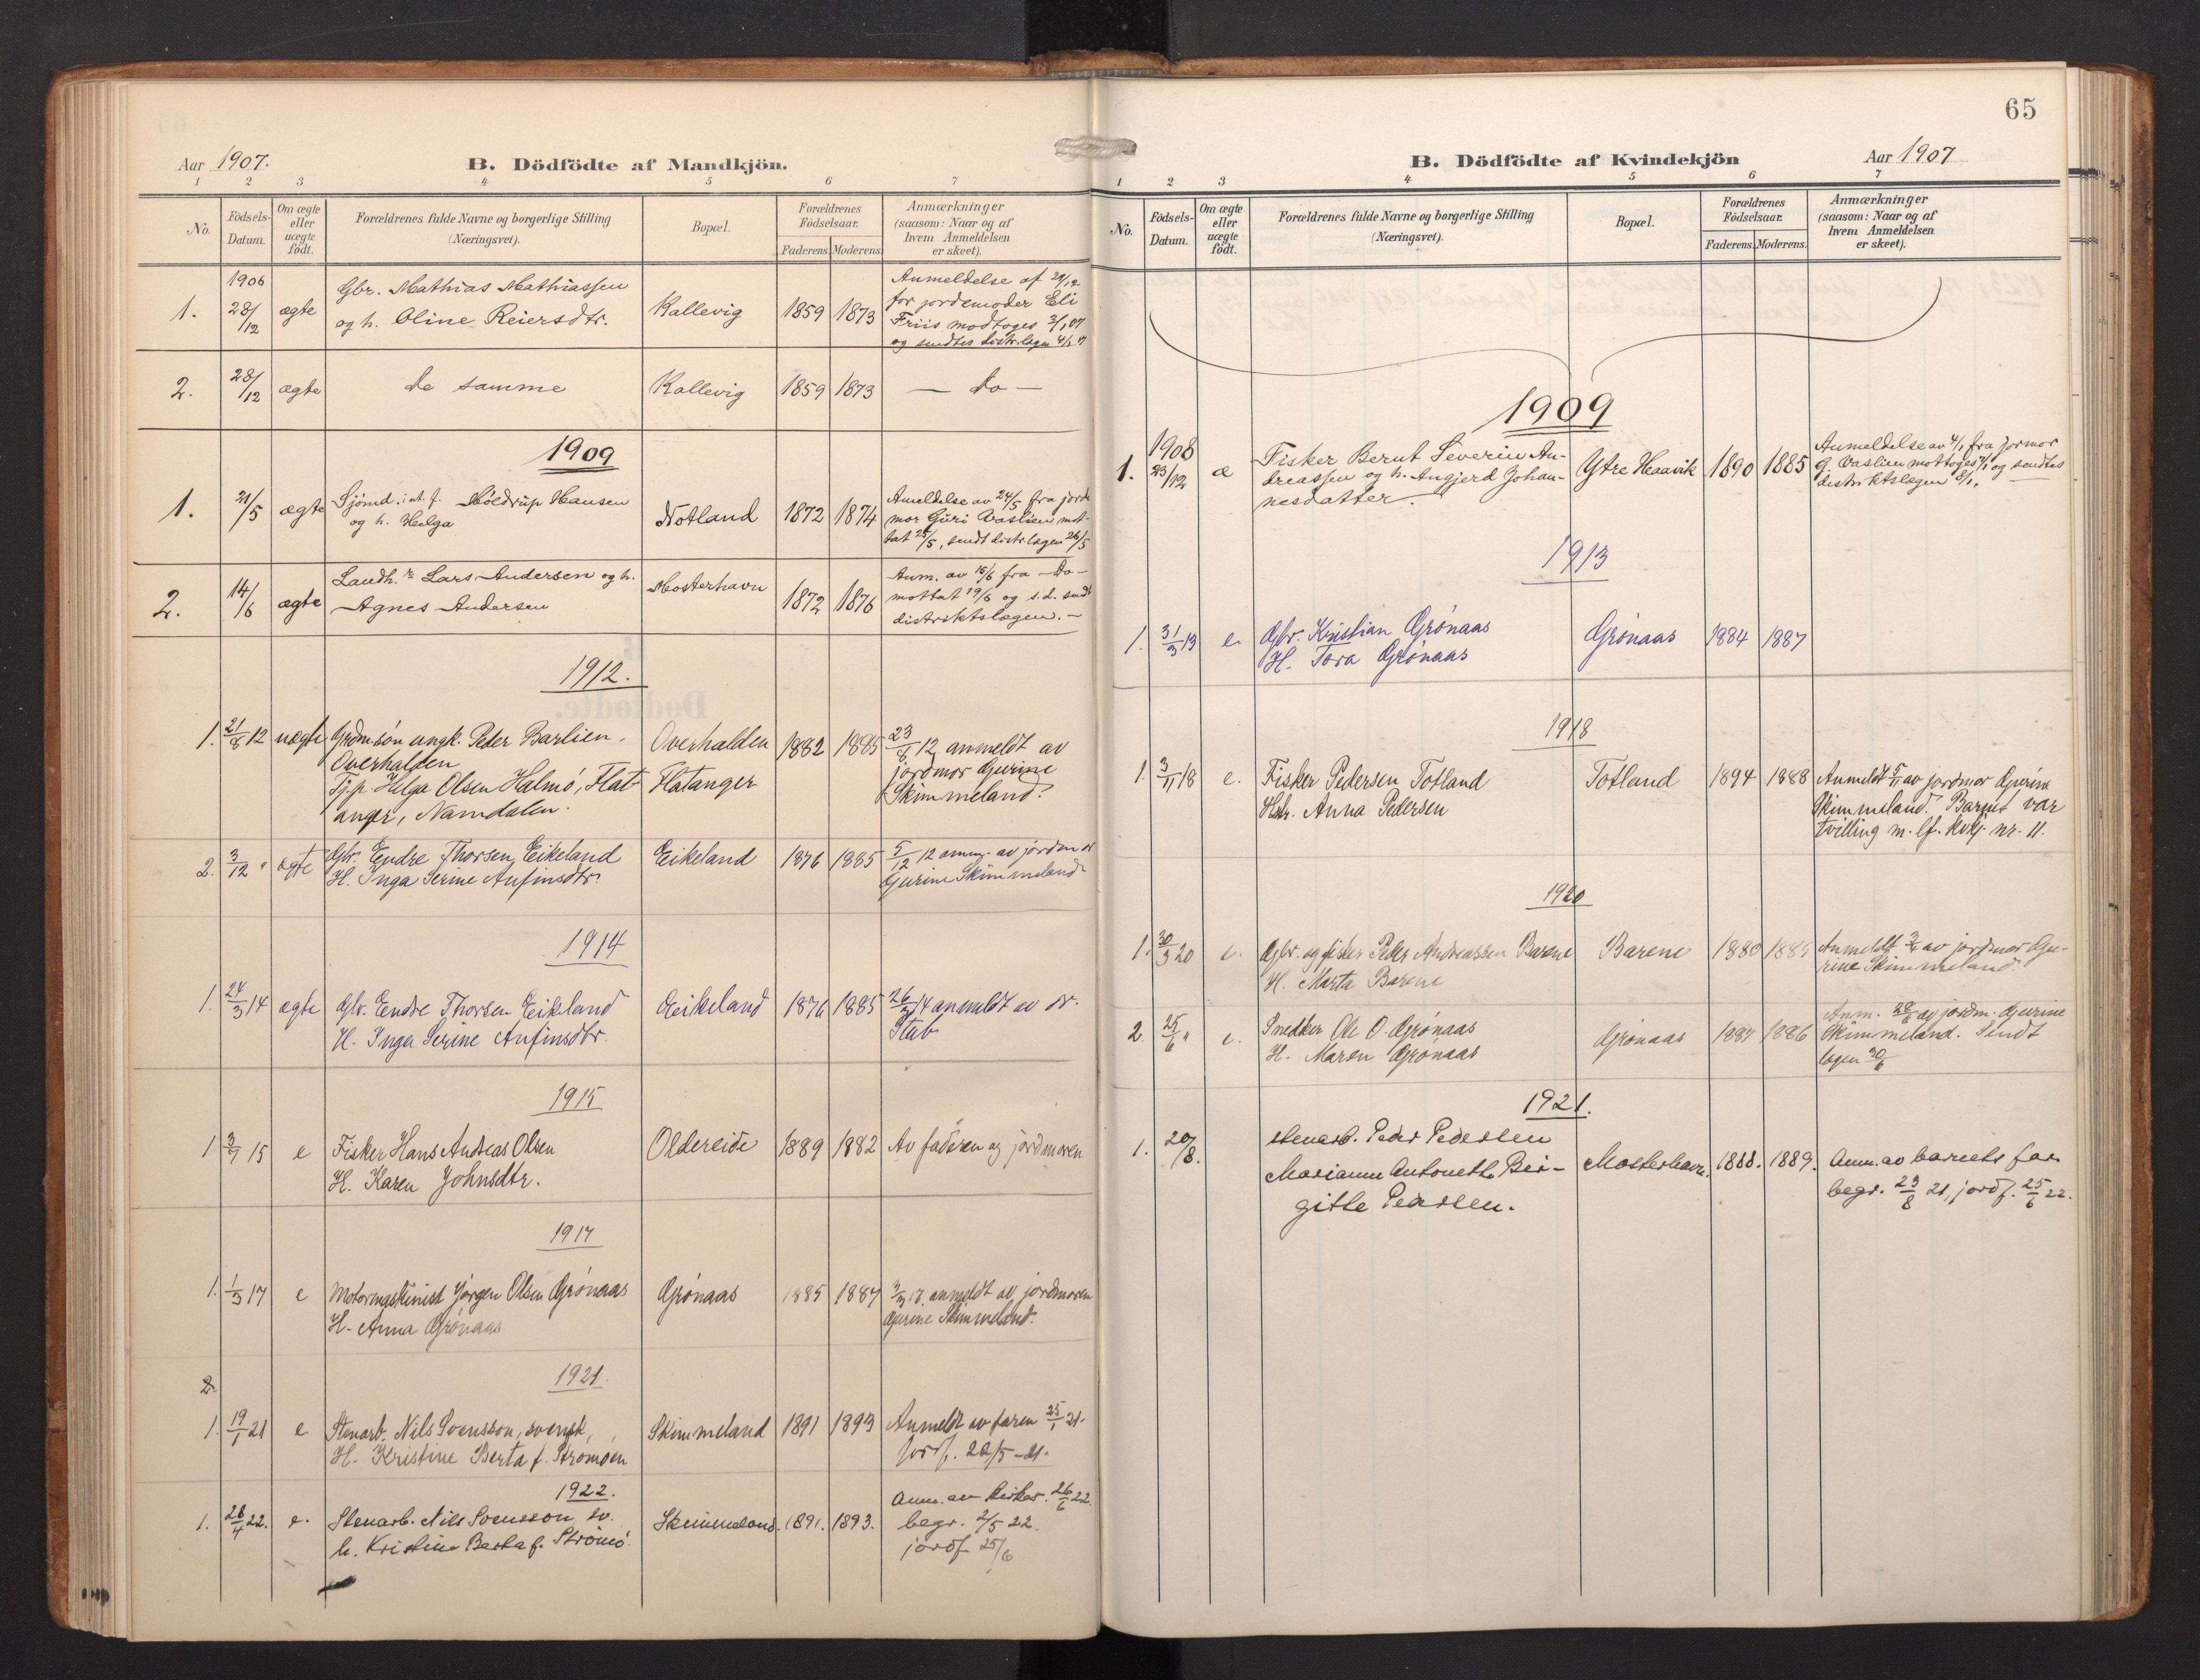 Aar 1907.
B. Dödfödte af Mandkjön.
1 2 3 4 5 6 7
No.
Födsels-Datum.
Om ægte eller uægte födt.
Forældrenes fulde Navne og borgerlige Stilling
(Næringsvei).
Bopæl.
Forældrenes Födselsaar.
Faderens. Moderens.
Anmærkninger
(saasom: Naar og af
hvem Anmeldelsen
er skeet).
1906
1. 28/12 ægte Gbr. Mathias Mathiassen
og h. Oline Reiersdtr.
Kallevig 1859 1873
Anmeldelse af 29/12
for jordemoder Eli
Friis modtoges 3/1 07
og sendtes distr.lægen 4/1 07
2. 28/12 ægte de samme Kallevig 1859 1873 — Do —
1909
1. 21/5 ægte Sjömd. Möldrup Hansen
og h. Helga
Notland 1872 1874
Anmeldelse av 24/5 fra jorde
mor Guri Vaslien mot-
tat 25/5, sendt distr.lægen 26/5
2. 14/6 ægte Landh. Lars Andersen og h.
Agnes Andersen
Mosterhavn 1872 1876
Anm. av 18/6 fra —Do—
mottat 19/6 og s.d. sendt
distriktslægen. —
1912.
1. 21/8 12 uægte Grdm.søn ungk. Peder Barlien.
Overhalden
Tjp. Helga Olsen Halmö, Flat-
anger, Namdalen.
Overhalden
Flatanger
1882 1885
23/8 12 anmeldt av
jordmor Gurine
Skimmeland.
2. 3/12 " ægte Gbr. Endre Thorsen Eikeland
H. Inga Serine Anfinsdtr.
Eikeland 1876 1885
5/12 12 anm. av jordmor
Gurine Skimmeland
1914
1. 24/3 14 ægte Gbr. Endre Thorsen Eikeland
H. Inga Serine Anfinsdtr.
Eikeland 1876 1885
26/3 14 anmeldt av dr.
Stub
1915
1 3/7 15 e Fisker Hans Andreas Olsen
H. Karen Johnsdtr.
Oldereide 1889 1882 Av faderen og jordmoren
1917
1. 1/3 17 e Motormaskinist Jörgen Olsen Grönaas
H. Anna Grönaas
Grönaas 1885 1887
3/3 17. anmeldt av jordmoren
Gurine Skimmeland.
1921
2
1. 19/1 21 e Stenarb. Nils Svensson, svensk,
H. Kristine Berta f. Strömöen
Skimmeland 1891 1893
Anmeldt av faren 25/1 21.
Jordf. 22/5 - 21.
1922.
1. 28/4 22. e. Stenarb. Nils Svensson, sv.
h. Kristine Berta f. Strömö.
Skimmeland. 1891. 1893.
Anm. av kirkes. 26/6 22.
begr. 2/5 22.
jordf. 25/6
65
B. Dödfödte af Kvindekjön
Aar 1907
1 2 3 4 5 6 7
No.
Födsels-Datum.
Om ægte eller uægte födt.
Forældrenes fulde Navne og borgerlige Stilling
(Næringsvei).
Bopæl.
Forældrenes Födselsaar.
Faderens. Moderens.
Anmærkninger
(saasom: Naar og af
hvem Anmeldelsen
er skeet).
1909
1908
1. 23/12 æ Fisker Bernt Severin An-
dreassen og h. Angjerd Johan-
nesdatter.
Ytre Haavik 1890 1885
Anmeldelse av 4/1 fra jormor
G. Vaslien mottoges 7/1 og sendtes
distriktslægen 8/1.
1913
1. 31/3 13 e. Gbr. Kristian Grönaas
H. Tora Grönaas
Grönaas 1884 1887
1918
1. 3/11 18 e. Fisker Pedersen Totland
Hstr. Anna Pedersen
Totland 1894 1888
Anmeldt 5/11 av jordmor Gurine
Skimmeland. Barnet var
tvilling m. lf. kvkj. nr. 11.
1920
1. 30/3 20 e. Gbr. og fisker Peder Andreassen Barene
H. Marta Barene
Barene 1880 1885
Anmeldt av jordmor Gu-
rine Skimmeland.
2. 25/6 " e. Snedker Ole O. Grönaas
H. Maren Grönaas
Grönaas 1887 1886
Anm. av jordm. Gurine
Skimmeland. Sendt
lægen 30/6
1921.
1. 20/8. Stenarb. Peder Pedersen
Marianne Antonette Bir-
gitte Pedersen.
Mosterhavn. 1888. 1889.
Anm. av barnets far
begr. 23/8 21, jordf. 25/6 22.